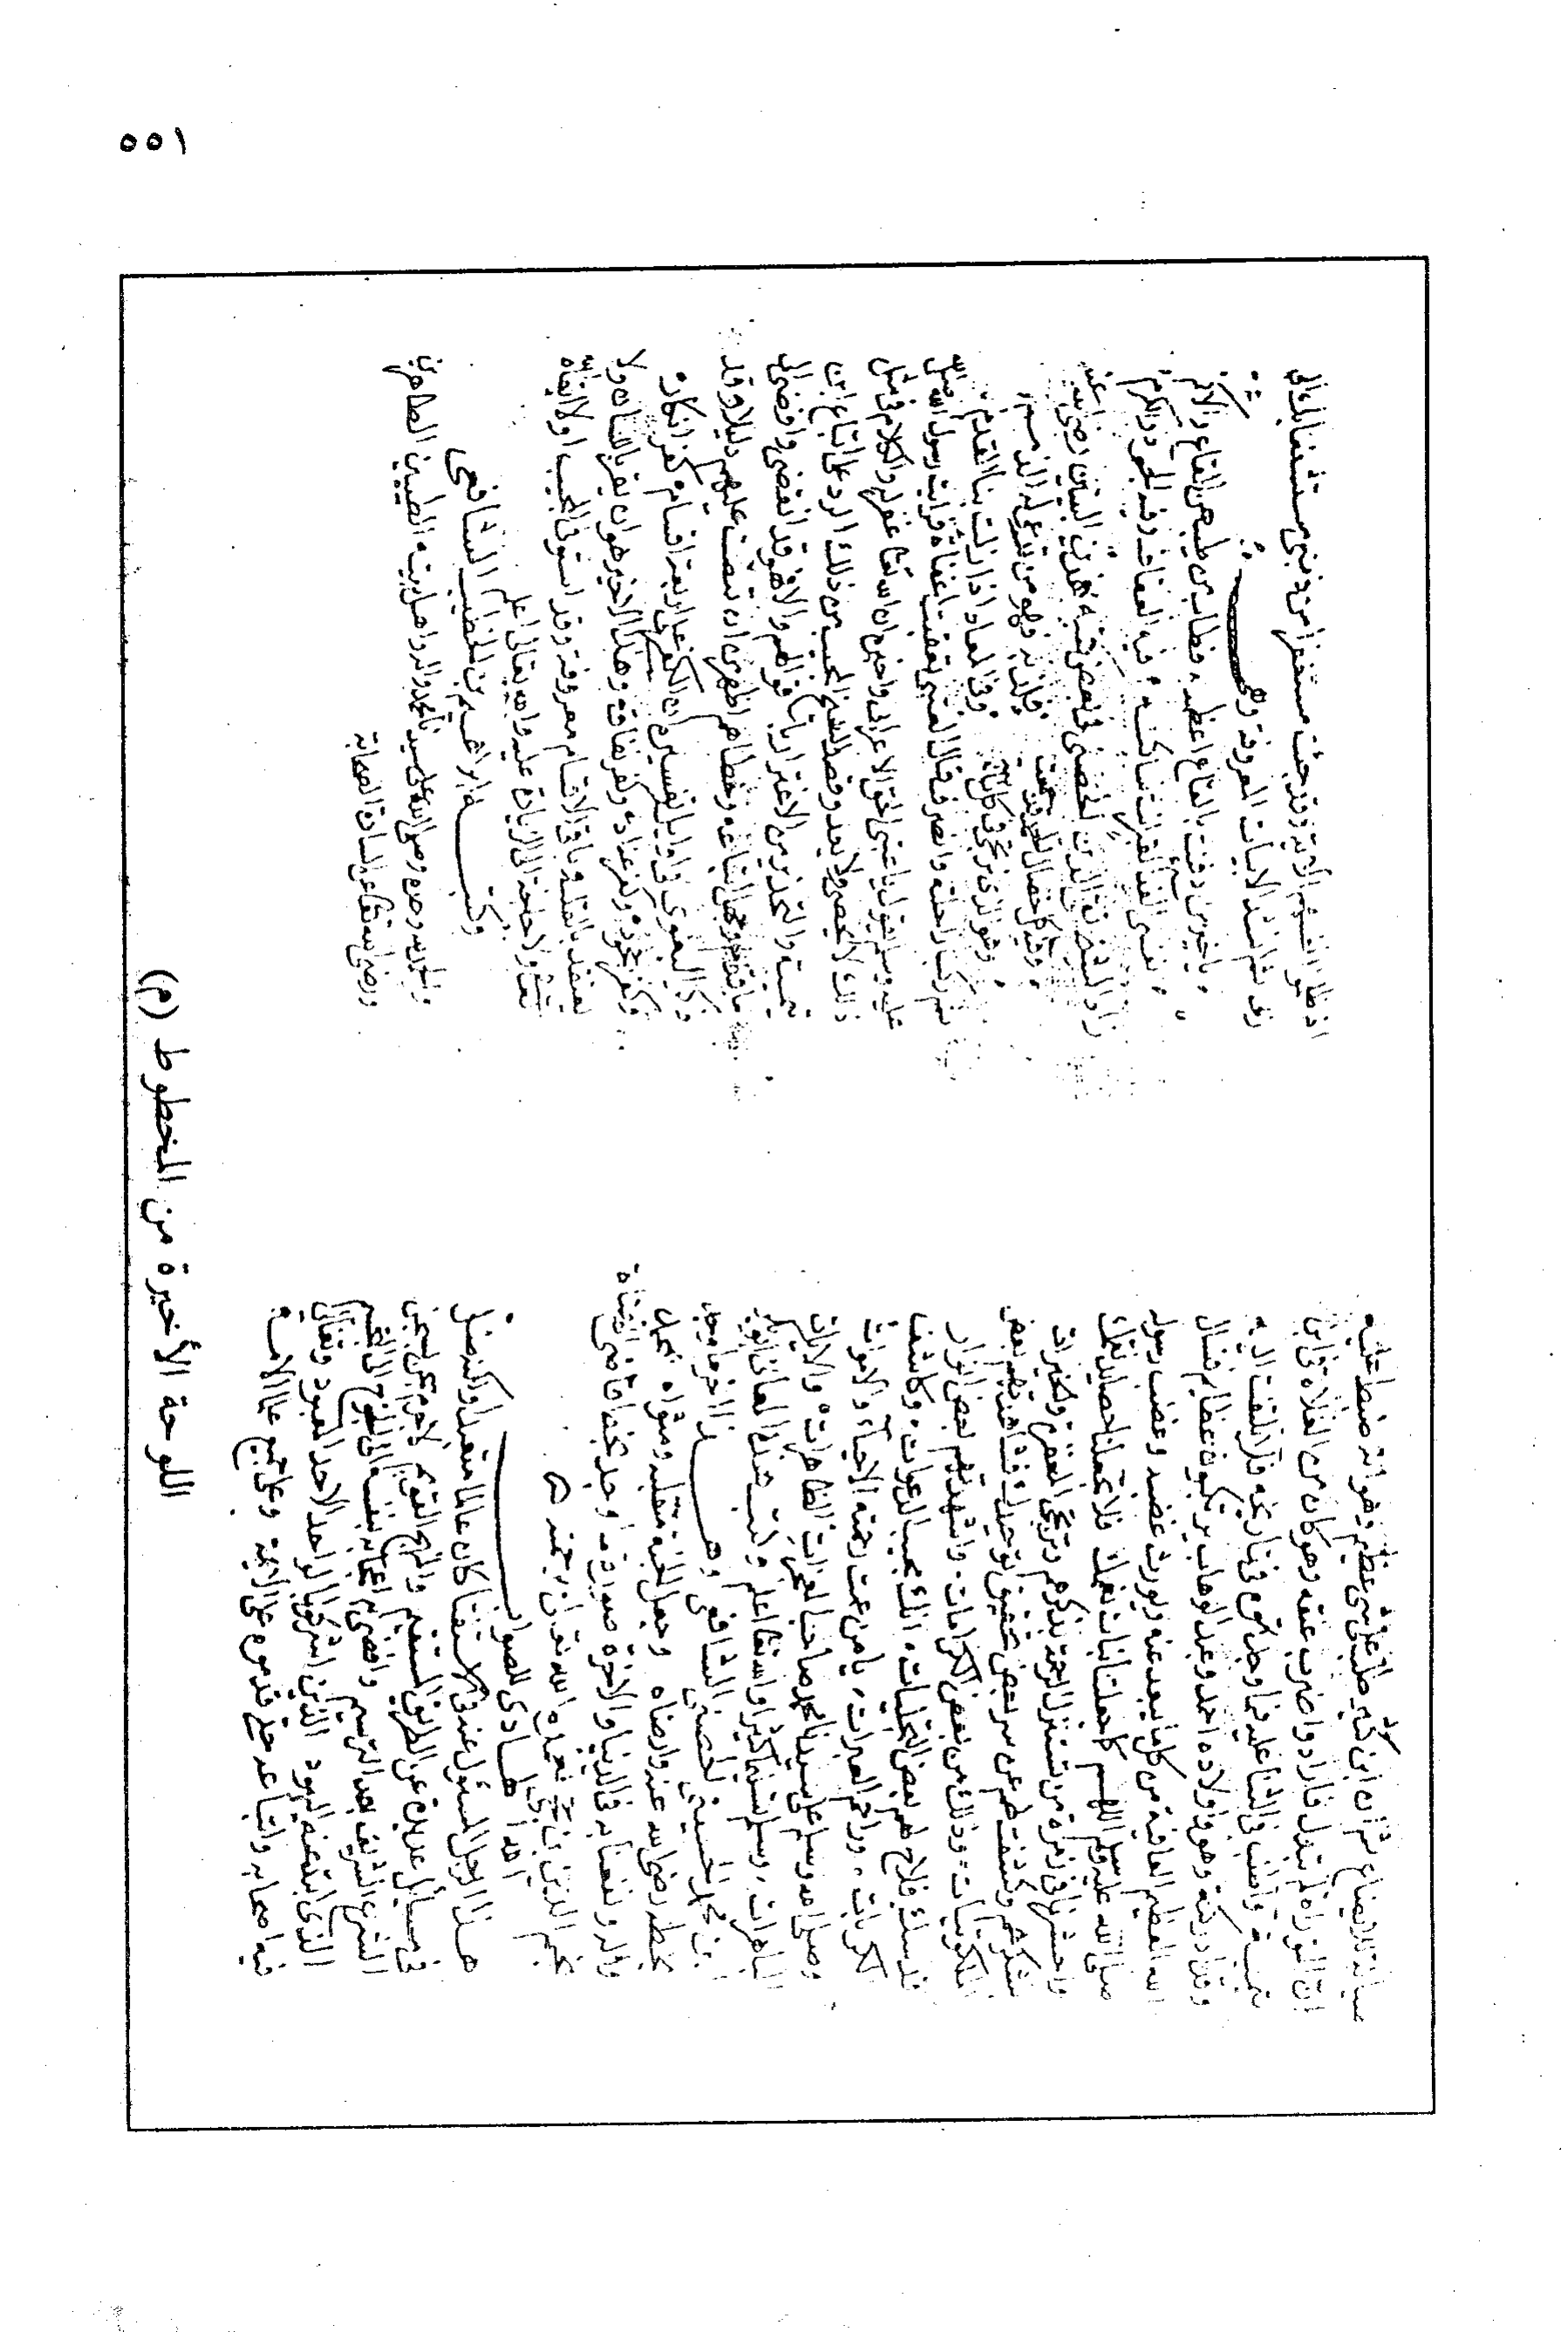 ٥٥١
ثم ان ابن كثير عظيم وهو انه ضبط عليه
ان التوراة لم تبدل فاراد واضرب عنقه وهو كان من الغلاة في ابن
تيمية واطنب في الثنا عليه فيما وجدتموه في تاريخه فلا يلتفت اليه
وقد ادركته وهو واولاده احمد وعبد الوهاب عظام فنسال
الله العظيم العافية من كل ما يبعد عنه ويورث غضبه وغضب رسوله
صلى الله عليه وسلم اللهم كما جعلتنا نبات نعمك فلا تجعلنا حصايد نقمك
واحشرنا في زمرة من تستنزل الرحمة بذكرهم وترتجى المغفرة والخيرات
بشكرهم وكشفت لهم عن سر بعض تحقيق توحيدك بعض
المكنونات وذلك من بعض الكرامات واشهدتهم بعض انوار
قدسك فلاح لهم بعض التجليات انك مجيب الدعوات وكاشف
الكربات وراحم العبرات يا من عمت رحمته الاحياء والاموات
وصلى الله وسلم على سيدنا محمد صاحب المعجزات الظاهرات والايات
الباهرات وسلم تسليما كثيرا والله تعالى اعلم
ابن محمد الحسيني الحصني الشافعي وهذا اخر ما وجد
بخطه رضي الله عنه وارضاه وجعل الجنة متقلبه ومثواه بمحمد
واله ونفعنا به في الدنيا والاخرة صورة ما وجد بخط قاضي القضاة
نجم الدين بن حجي تغمده الله تعالى برحمته
الله الهادي للصواب
هذا الرجل المسئول عنه في الاستفتا كان عالما متعبدا ولكنه ضل
في مسائل عديدة عن الطريق المستقيم والنهج القويم لاجرم سجن بسجن
الشرع الشريف بعد الترسيم وافضى به اعجابه بنفسه الى الجنوح الى التجسيم
الذي ابتدعته اليهود الذين اشركوا بالواحد الاحد المعبود وتغالى
فيه اصحابه واتباعه حتى قدموه على الائمة وعلى جميع علما الامة
اذ ظلموا انفسهم الاية وقد جئت مستغفرا من ذنبي مستشفعا بك الى
ربي ثم انشد الابيات المعروفة وهي
يا خير من دفنت بالقاع اعظمه فطاب من طيبهن القاع والاكم
نفسي الفدا لقبر انت ساكنه فيه العفاف وفيه الجود والكرم
زاد الشيخ تقي الدين الحصني في بعض كتبه هذين البيتين رضي الله عنه
وفيه كل خصال قد جمعت فلذ به فهو من ترعى له الذمم
وهو الذي يرتجى في كل نائبة وفي المعاد اذا زلت بنا القدم
ثم ركب راحلته وانصرف قال العتبي فغفيت اغفاة فرايت رسول الله صلى الله
عليه وسلم يقول يا عتبي الحق الاعرابي واخبره ان الله تعالى غفر له والكلام في مثل
ذلك لا يحصى ولا يعد وقصد الشيخ المجيب من ذلك الرد على اتباع ابن
تيمية والتحذير من الاغترار باقوالهم والا فهو قد انقضى وافضى الى
ما قدم وجهل اتباعه وخطاهم اظهر من ان تنصب عليهم دليلا وقد
ذكر البغوي في اول تفسيره ان الكفر على اربعة اقسام كفر انكار
وكفر جحود وكفر عناد وكفر نفاق وهذا الاخير هو ان يقر بلسانه ولا
يعتقد بقلبه وباقي الاقسام معروفة وقد استوفى المجيب اولا ابقاه الله
تعالى ولا حاجة الى الزيادة عليه والله تعالى اعلم
وكتبه ابراهيم بن الخطيب الشافعي
والحمد لله وحده وصلى الله على سيدنا محمد واله واهل بيته الطيبين الطاهرين
ورضي الله تعالى عن السادات الصحابة
اللوحة الأخيرة من المخطوط (م)